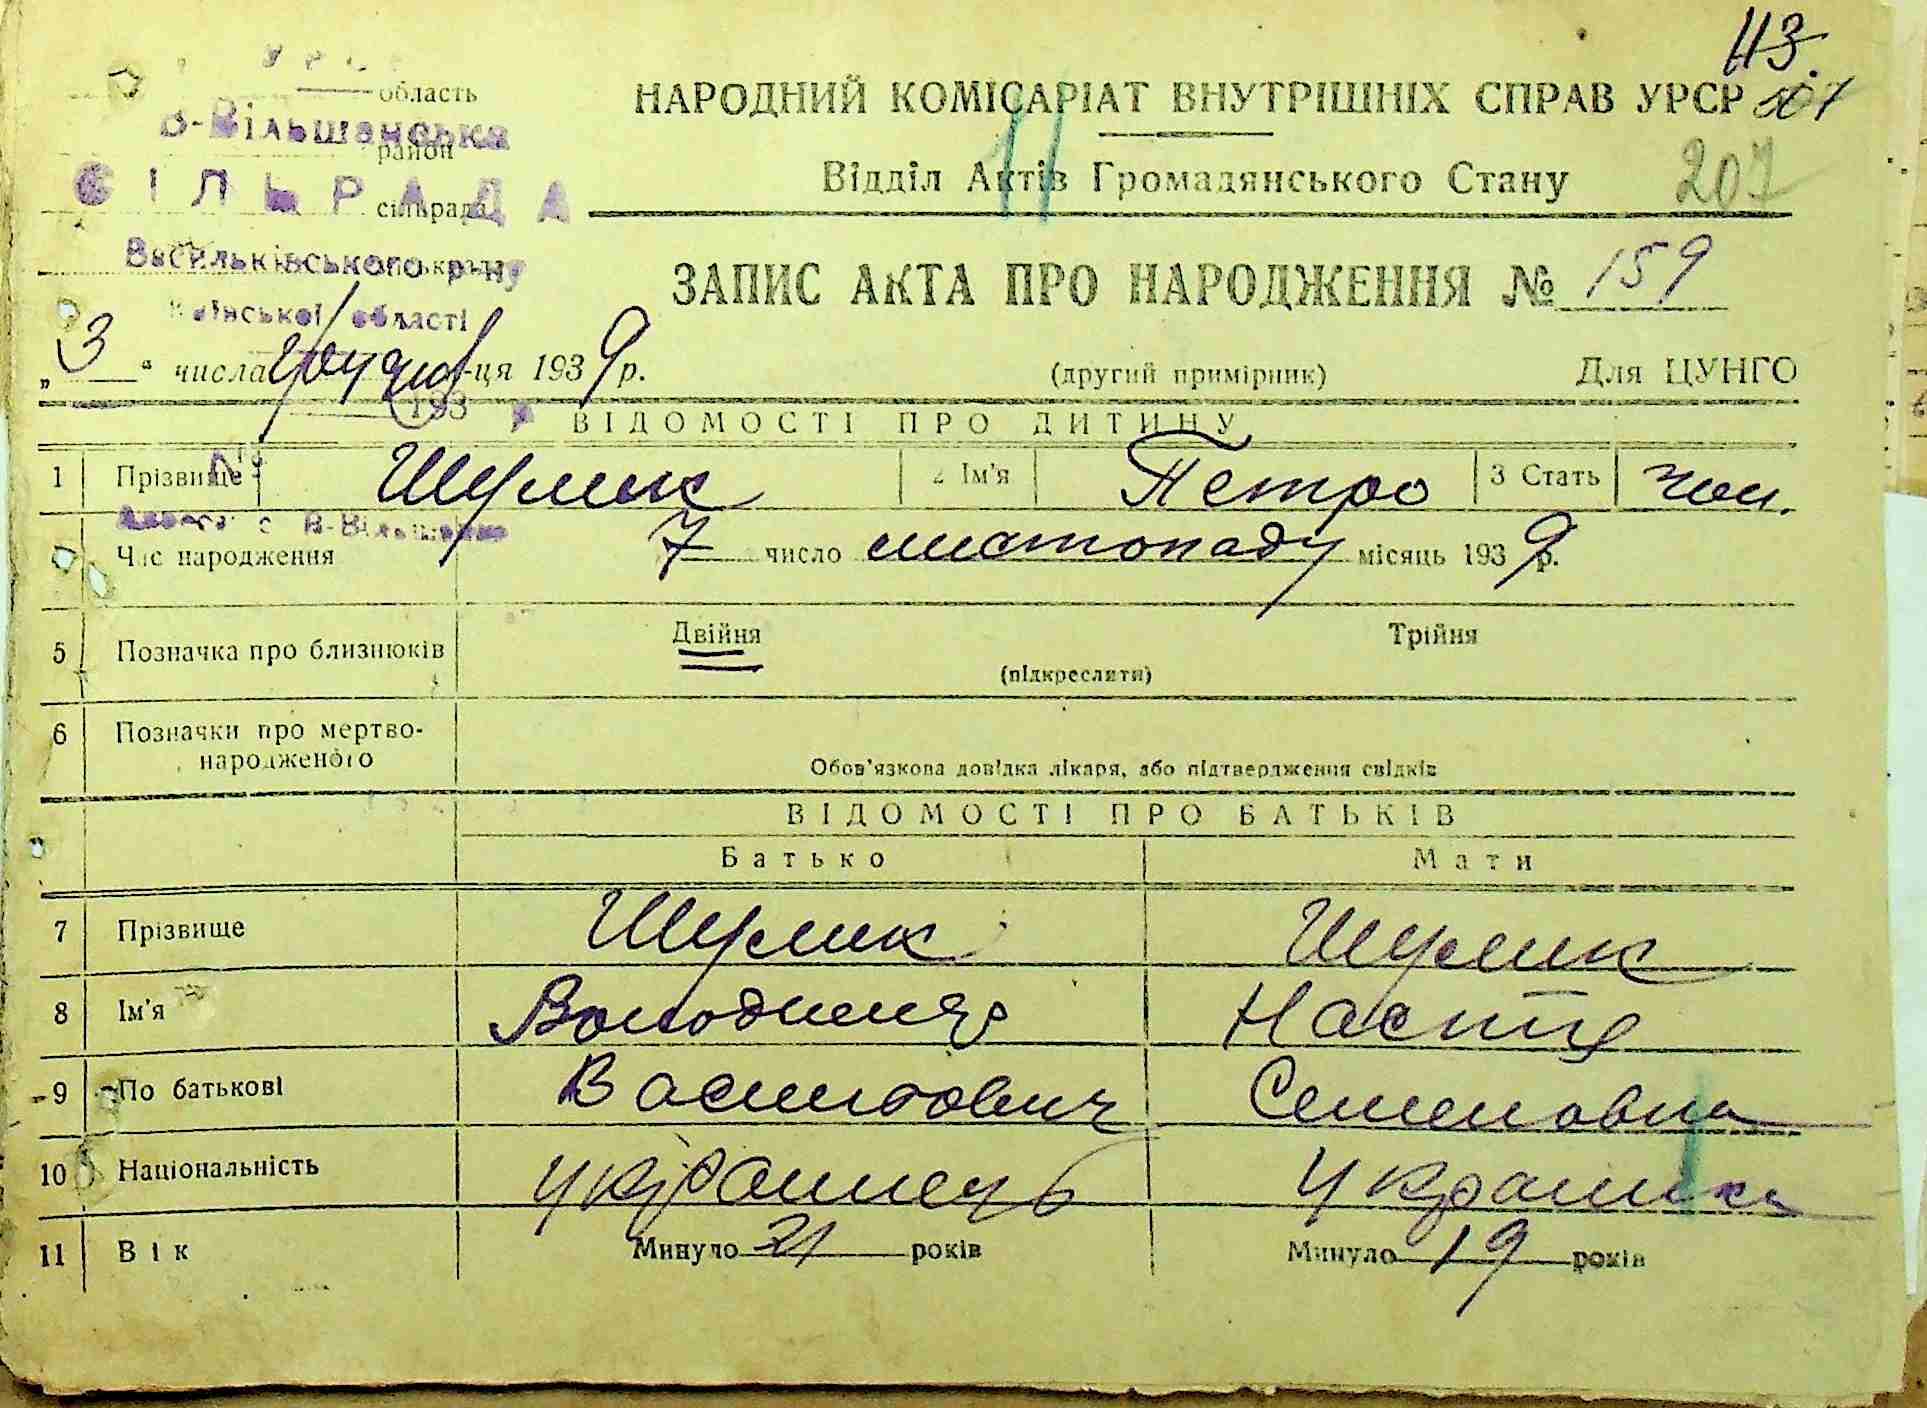 113.
УРСР
область
НАРОДНИЙ КОМІСАРІАТ ВНУТРІШНІХ СПРАВ УРСР 507
В-Вільшанська
район
Відділ Актів Громадянського Стану 207
СІЛЬРАДА
сільрада
Васильківського р-ну
Київської області
ЗАПИС АКТА ПРО НАРОДЖЕННЯ № 159
„3“ числа грудня м-ця 1939 р.
(другий примірник) Для ЦУНГО
193
ВІДОМОСТІ ПРО ДИТИНУ
№
1 Прізвище Шулик 2 Ім'я Петро 3 Стать чол.
Адреса с. В-Вільшанка
Час народження 7 число листопаду місяць 1939 р.
5 Позначка про близнюків Двійня Трійня
(підкреслити)
6 Позначки про мертво-
народженого
Обов'язкова довідка лікаря, або підтвердження свідків
ВІДОМОСТІ ПРО БАТЬКІВ
Батько Мати
7 Прізвище Шулик Шулик
8 Ім'я Володимир Настя
9 По батькові Васильович Семеновна
10 Національність українець українка
11 Вік Минуло 21 років Минуло 19 років